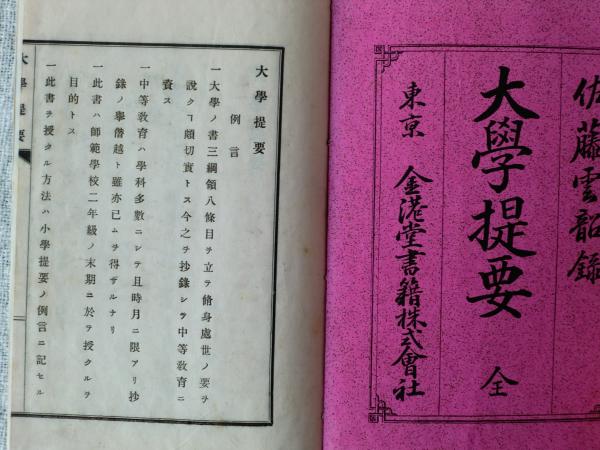 佐藤雲韶錄
大學提要 全
東京 金港堂書籍株式會社
大學提要
例言
一大學ノ書三綱領八條目ヲ立テ脩身處世ノ要ヲ
說クヿ頗切實トス今之ヲ抄錄シテ中等敎育ニ
資ス
一中等敎育ハ學科多數ニシテ且時月ニ限アリ抄
錄ノ擧僭越ト雖亦已ムヲ得ザルナリ
一此書ハ師範學校二年級ノ末期ニ於テ授クルヲ
目的トス
一此書ヲ授クル方法ハ小學提要ノ例言ニ記セル
大學提要